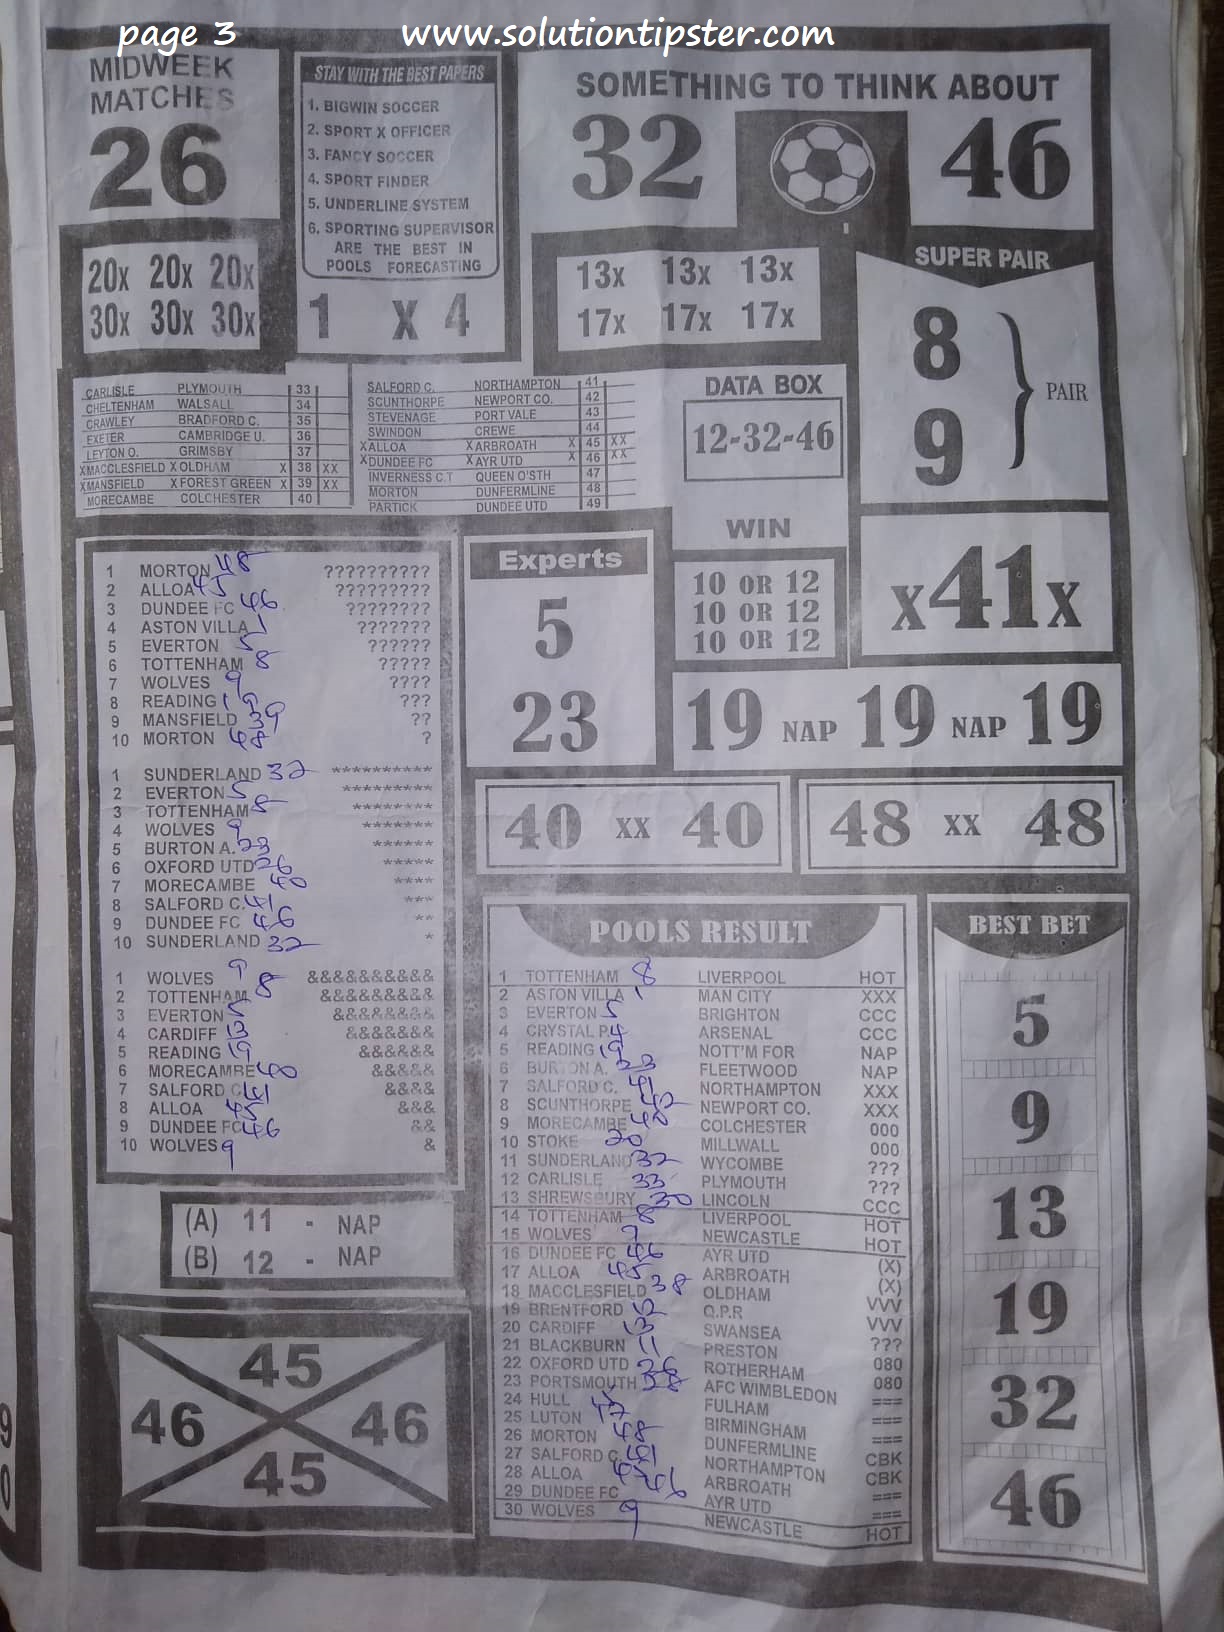 page 3 www.solutiontipster.com
MIDWEEK
MATCHES
26
20x 20x 20x
30x 30x 30x
STAY WITH THE BEST PAPERS
1. BIGWIN SOCCER
2. SPORT X OFFICER
3. FANCY SOCCER
4. SPORT FINDER
5. UNDERLINE SYSTEM
6. SPORTING SUPERVISOR
ARE THE BEST IN
POOLS FORECASTING
1 X 4
SOMETHING TO THINK ABOUT
32 46
13x 13x 13x
17x 17x 17x
SUPER PAIR
8
9
PAIR
CARLISLE PLYMOUTH 33
CHELTENHAM WALSALL 34
CRAWLEY BRADFORD C. 35
EXETER CAMBRIDGE U. 36
LEYTON O. GRIMSBY 37
XMACCLESFIELD X OLDHAM X 38 XX
XMANSFIELD XFOREST GREEN X 39 XX
MORECAMBE COLCHESTER 40
SALFORD C. NORTHAMPTON 41
SCUNTHORPE NEWPORT CO. 42
STEVENAGE PORT VALE 43
SWINDON CREWE 44
XALLOA XARBROATH X 45 XX
XDUNDEE FC XAYR UTD X 46 XX
INVERNESS C.T QUEEN O'STH 47
MORTON DUNFERMLINE 48
PARTICK DUNDEE UTD 49
DATA BOX
12-32-46
WIN
10 OR 12
10 OR 12
10 OR 12
X41X
Experts
5
23
19 NAP 19 NAP 19
40 XX 40
48 XX 48
1 MORTON 48 ??????????
2 ALLOA 45 ?????????
3 DUNDEE FC 46 ????????
4 ASTON VILLA 1 ???????
5 EVERTON 5 ??????
6 TOTTENHAM 8 ?????
7 WOLVES 9 ????
8 READING 19 ???
9 MANSFIELD 39 ??
10 MORTON 48 ?
1 SUNDERLAND 32 **********
2 EVERTON 5 *********
3 TOTTENHAM 8 ********
4 WOLVES 9 *******
5 BURTON A. 23 ******
6 OXFORD UTD 26 *****
7 MORECAMBE 40 ****
8 SALFORD C. 41 ***
9 DUNDEE FC 46 **
10 SUNDERLAND 32 *
1 WOLVES 9 &&&&&&&&&&
2 TOTTENHAM 8 &&&&&&&&&
3 EVERTON 5 &&&&&&&&
4 CARDIFF 13 &&&&&&&
5 READING 19 &&&&&&
6 MORECAMBE 40 &&&&&
7 SALFORD C. 41 &&&&
8 ALLOA 45 &&&
9 DUNDEE FC 46 &&
10 WOLVES 9 &
(A) 11 - NAP
(B) 12 - NAP
45
46 46
45
POOLS RESULT
1 TOTTENHAM 8 LIVERPOOL HOT
2 ASTON VILLA 1 MAN CITY XXX
3 EVERTON 5 BRIGHTON CCC
4 CRYSTAL P. 4 ARSENAL CCC
5 READING 19 NOTT'M FOR NAP
6 BURTON A. 23 FLEETWOOD NAP
7 SALFORD C. 41 NORTHAMPTON XXX
8 SCUNTHORPE 42 NEWPORT CO. XXX
9 MORECAMBE 40 COLCHESTER 000
10 STOKE 20 MILLWALL 000
11 SUNDERLAND 32 WYCOMBE ???
12 CARLISLE 33 PLYMOUTH ???
13 SHREWSBURY 30 LINCOLN CCC
14 TOTTENHAM 8 LIVERPOOL HOT
15 WOLVES 9 NEWCASTLE HOT
16 DUNDEE FC 46 AYR UTD (X)
17 ALLOA 45 ARBROATH (X)
18 MACCLESFIELD 38 OLDHAM VVV
19 BRENTFORD 12 Q.P.R VVV
20 CARDIFF 13 SWANSEA ???
21 BLACKBURN 11 PRESTON 080
22 OXFORD UTD 26 ROTHERHAM 080
23 PORTSMOUTH 28 AFC WIMBLEDON ===
24 HULL FULHAM ===
25 LUTON 17 BIRMINGHAM ===
26 MORTON 48 DUNFERMLINE CBK
27 SALFORD C. 41 NORTHAMPTON CBK
28 ALLOA 45 ARBROATH ===
29 DUNDEE FC 46 AYR UTD ===
30 WOLVES 9 NEWCASTLE HOT
BEST BET
5
9
13
19
32
46